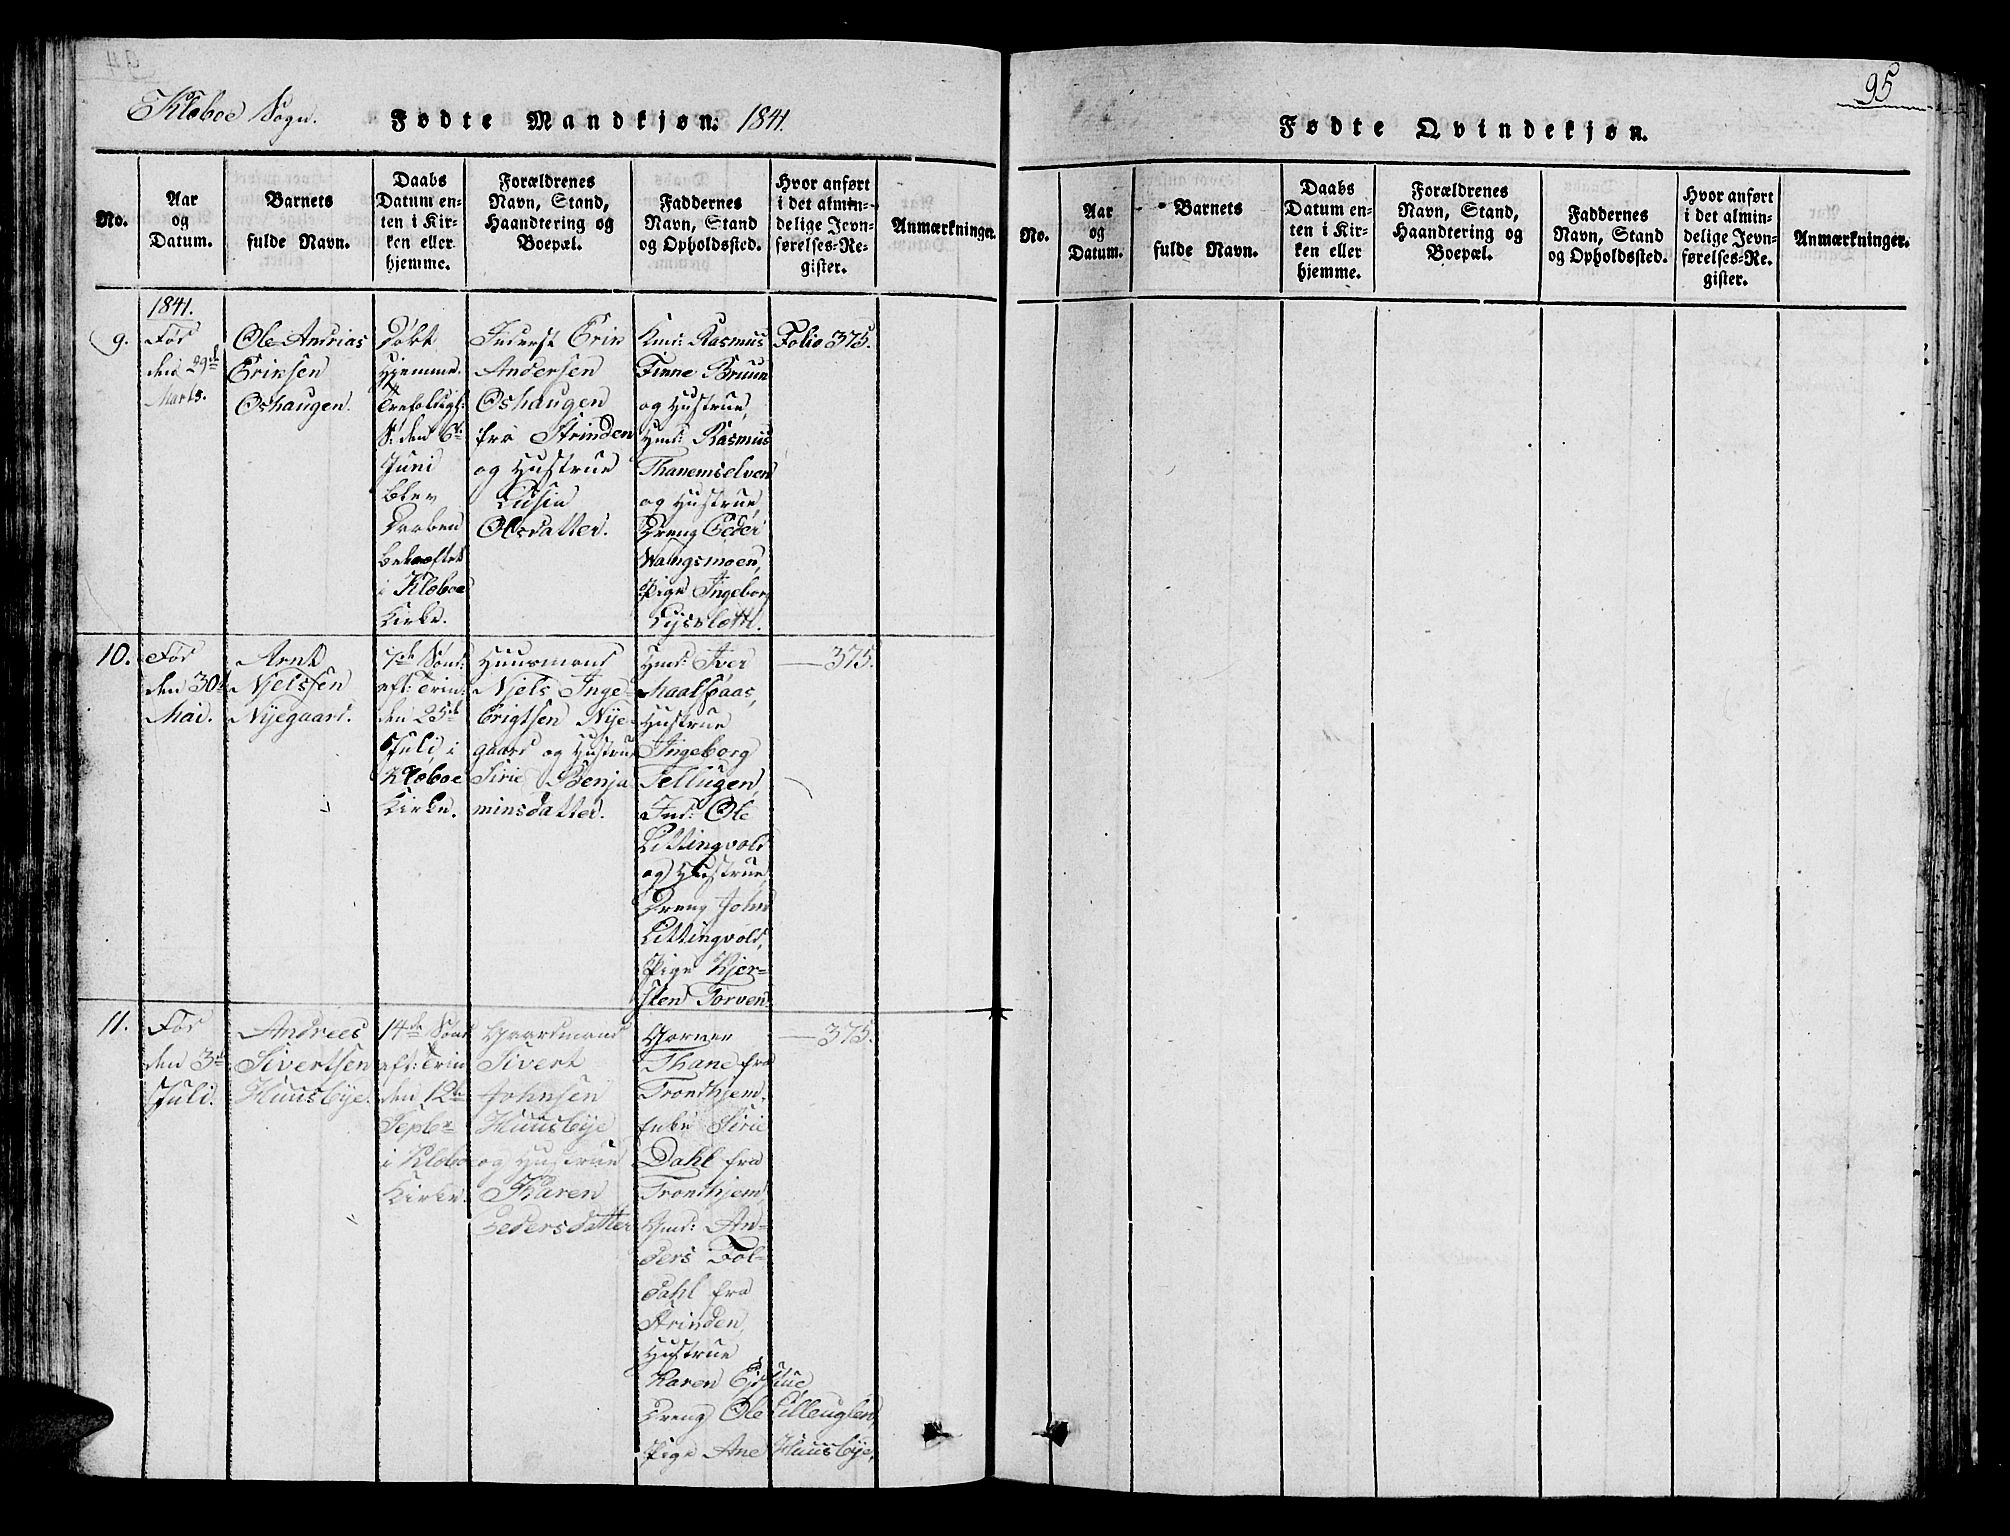 95
Kleboe Sogn. Fødte Mandkjøn: 1841.
No.
Aar
og
Datum.
Barnets
fulde Navn.
Daabs
Datum en-
ten i Kir-
ken eller
hjemme.
Forældrenes
Navn, Stand,
Haandtering og
Boepæl.
Faddernes
Navn, Stand
og Opholdssted.
Hvor anført
i det almin-
delige Jevn-
førelses-Re-
gister.
Anmærkninger.
9.
1841.
Fød
den 29de
Marts.
Ole Andrias
Eriksen
Oshaugen.
Døbt
Hjemme.
Trefoldigh:
S: den 6te
Juni
blev
Daaben
bekræftet
i Kleboe
Kirke.
Inderst Erik
Andersen
Oshaugen
fra Strinden
og Hustrue
Olsdatter.
Hmd: Rasmus
Finne Bruun
og Hustrue,
Hmd: Rasmus
Thanemselven
og Hustrue,
Dreng Peder
Vangsmoen,
Pige Ingeborg
Lysklett.
Folio 375.
10.
Fød
den 30te
Mai.
Arnt
Njelssen
Nyegaard.
7de Sønd:
eft: Trin:
den 25de
Juli i
Kleboe
Kirke.
Huusmand
Njels Inge-
brigtsen Nye-
gaard og Hustrue
Sirie Benja-
minsdatter.
Hmd: Iver
Maalsaas,
Hustrue
Ingeborg
Tellugen,
Ind: Ole
Littingvold
og Hustrue,
Dreng John
Littingvold,
Pige Kjer-
sten Torven.
— 375.
11.
Fød
den 3de
Juli.
Andreas
Sivertsen
Huusbye.
14de Sønd
eft: Trin
den 12te
Septbr
i Klebo
Kirke.
Gaardmand
Sivert
Johnsen
Huusbye
og Hustrue
Karen
Pedersdatter
Garver
Thane fra
Trondhjem,
Enke Sirie
Dahl fra
Trondhjem
Gmd: An-
ders Fol-
dahl fra
Strinden,
Hustrue
Karen
Dreng Ole Lilleuglen,
Pige Ane Huusbye.
— 375.
Fødte Qvindekjøn.
No.
Aar
og
Datum.
Barnets
fulde Navn.
Daabs
Datum en-
ten i Kir-
ken eller
hjemme.
Forældrenes
Navn, Stand,
Haandtering og
Boepæl.
Faddernes
Navn, Stand
og Opholdssted.
Hvor anført
i det almin-
delige Jevn-
førelses-Re-
gister.
Anmærkninger.